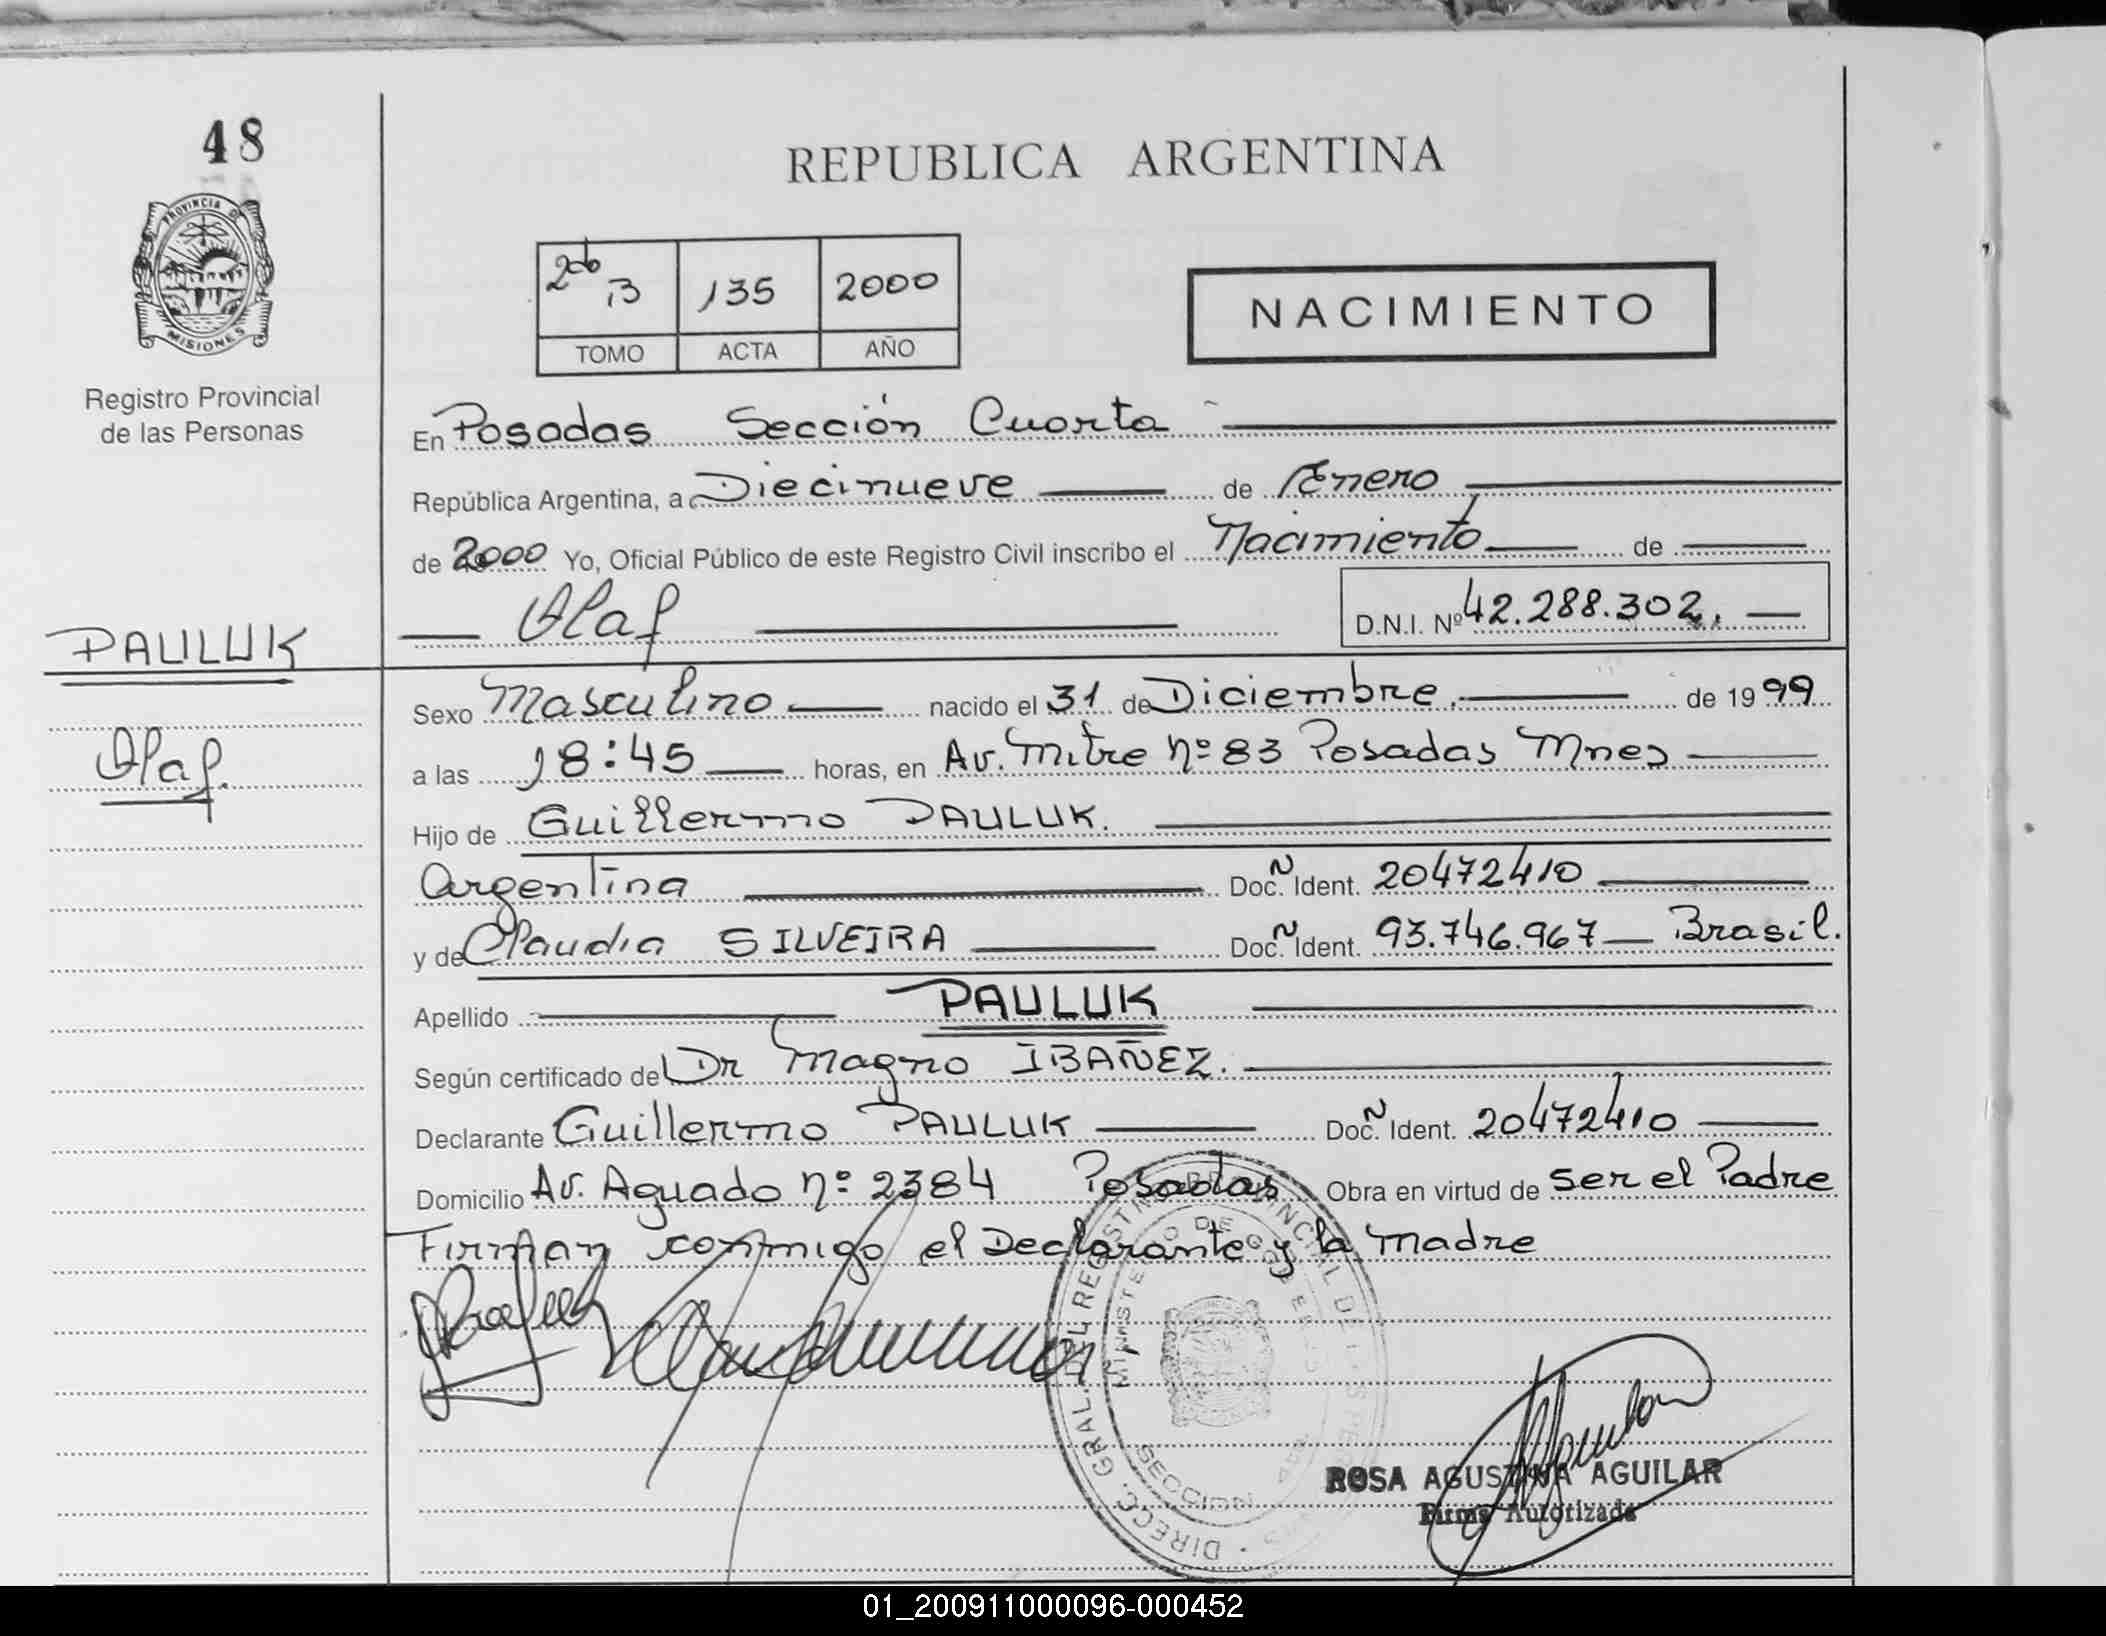 48
REPUBLICA ARGENTINA
PROVINCIA DE
MISIONES
Registro Provincial
de las Personas
2do B 135 2000
TOMO ACTA AÑO
NACIMIENTO
En Posadas Sección Cuarta
República Argentina, a Diecinueve de Enero
de 2000 Yo, Oficial Público de este Registro Civil inscribo el Nacimiento de
Olaf D.N.I. Nº 42.288.302.
PAULUK
Olaf.
Sexo Masculino nacido el 31 de Diciembre. de 1999
a las 18:45 horas, en Av. Mitre nº 83 Posadas Mnes
Hijo de Guillermo PAULUK.
Argentina Doc. Ident. 20472410
y de Claudia SILVEIRA Doc. Ident. 93.746.967 Brasil.
Apellido PAULUK
Según certificado de Dr Magno IBAÑEZ.
Declarante Guillermo PAULUK Doc. Ident. 20472410
Domicilio Av. Aguado nº 2384 Posadas Obra en virtud de ser el Padre
Firman conmigo el Declarante y la Madre
DIRECC. GRAL. DEL REGISTRO PROVINCIAL DE LAS PERSONAS
MINISTERIO DE GOBIERNO
SECCION
ROSA AGUSTINA AGUILAR
Firma Autorizada
01_200911000096-000452